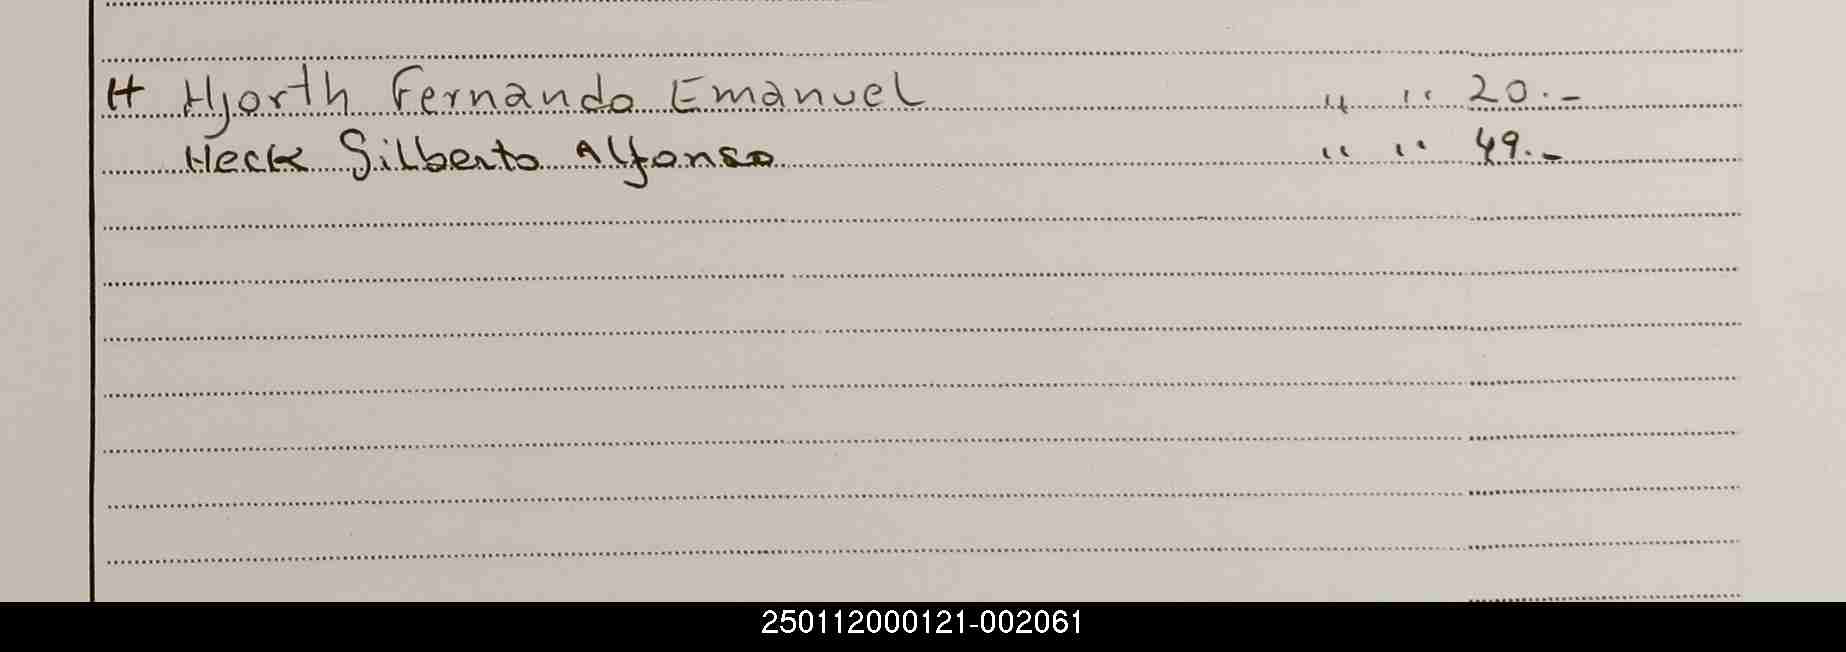 H Hjorth Fernando Emanuel " " 20.-
Heck Silberto Alfonso " " 49.-
250112000121-002061